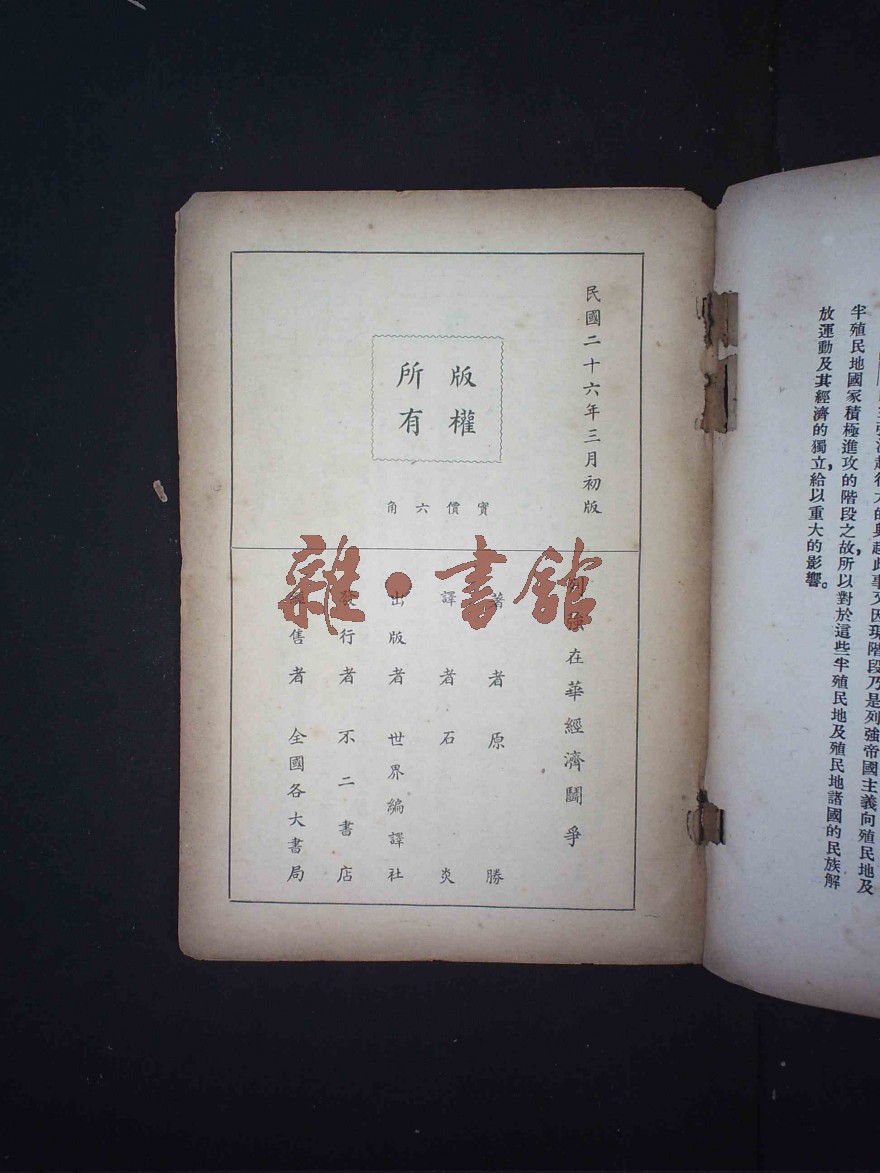 此事又因現階段乃是列強帝國主義向殖民地及
半殖民地國家積極進攻的階段之故，所以對於這些半殖民地及殖民地諸國的民族解
放運動及其經濟的獨立，給以重大的影響。
民國二十六年三月初版
版權
所有
實價六角
列強在華經濟鬪爭
著者 原勝
譯者 石炎
出版者 世界編譯社
發行者 不二書店
售者 全國各大書局
雜•書館